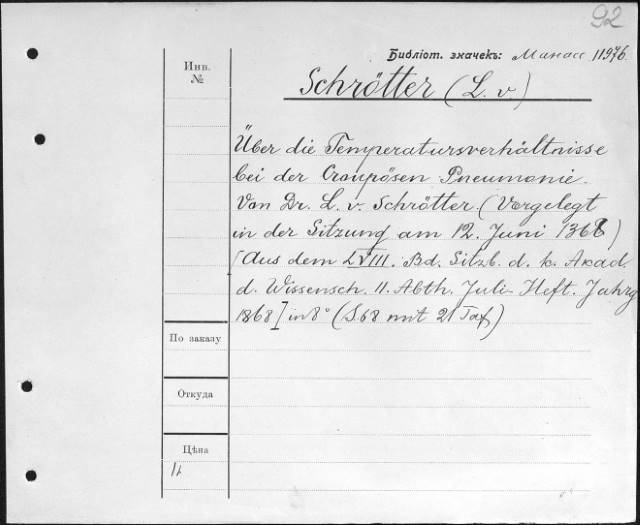 92
Библіот. значекъ: Манас 11976.
Инв.
№
Schrötter (L. v.)
Über die Temperatursverhältnisse
bei der Croupösen Pneumonie.
Von Dr. L. v. Schrötter (Vorgelegt
in der Sitzung am 12. Juni 1368)
[Aus dem LVIII. Bd. Sitzb. d. k. Akad.
d. Wissensch. II. Abth. Juli-Heft. Jahrg
1868] in 8° (S. 68 mit 21 Taf)
По заказу
Откуда
Цѣна